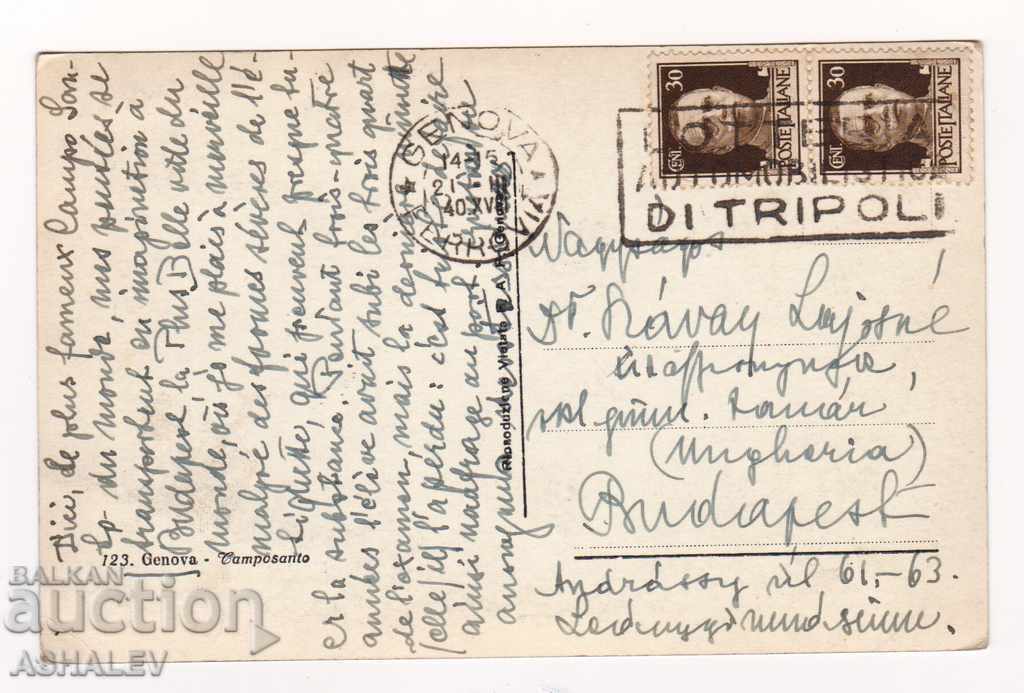 D'ici, de plus fameux Campo San-
du monde, mes pensées se
transportent en imagination à
Budapest la Plus Belle ville du
monde, où je me plais à merveille
malgré des formes sévères de l'é-
tiquette, qui peuvent presque tu-
er la substance. Pendant trois-quatre
années l'élève avait subi les trois quart
de l'examen, mais la dernière minute
(elle) il l'a perdu: c'est
ainsi naufrage au port.
123. Genova - Camposanto
Riproduzione Vietata
GENOVA
FERROVIA
40.XVIII
30
CENT.
POSTE ITALIANE
30
CENT.
POSTE ITALIANE
AUTOMOBILISTICO
DI TRIPOLI
Nagysás
Dr. Kávay Lajosné
tanár
(Ungheria)
Budapest
Andrássy út 61,-63.
Leánygimnázium.
BALKAN
auction
ASHALEV